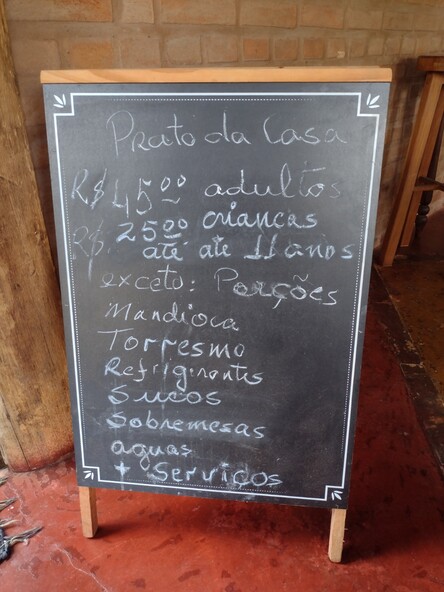 Prato da Casa
R$ 45,00 adultos
R$ 25,00 crianças
até ate 11 anos
exceto: Porções
Mandioca
Torresmo
Refrigerantes
Sucos
Sobremesas
aguas
+ Serviços